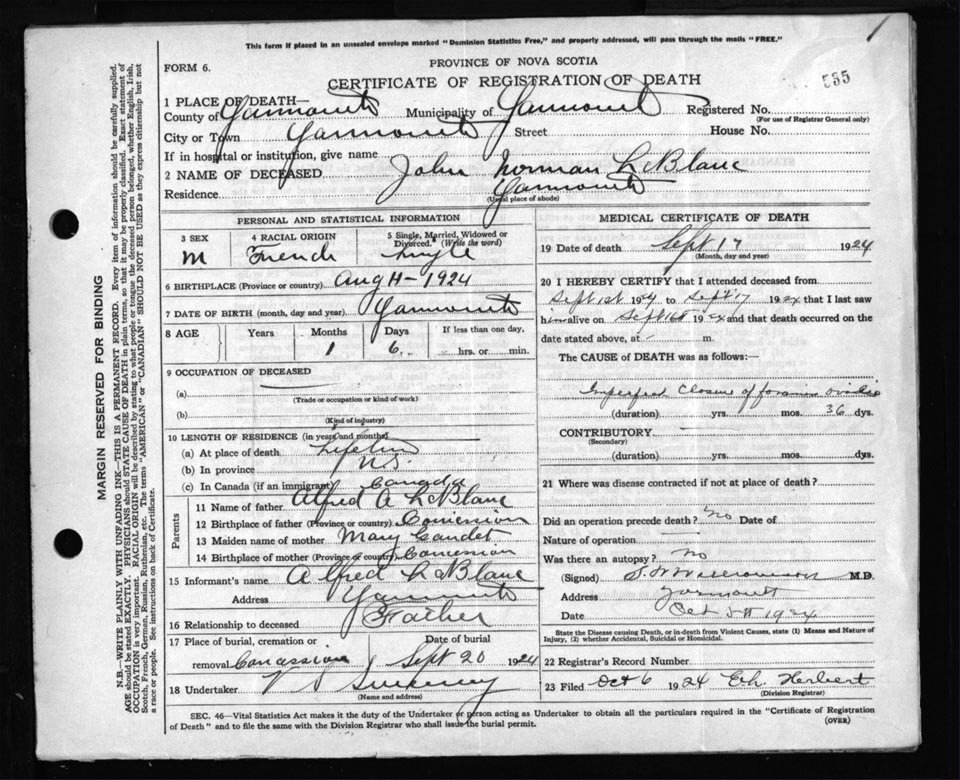 This form if placed in an unsealed envelope marked "Dominion Statistics Free," and properly addressed, will pass through the mails "FREE."
1
FORM 6.
PROVINCE OF NOVA SCOTIA
CERTIFICATE OF REGISTRATION OF DEATH
585
1 PLACE OF DEATH—
County of Yarmouth Municipality of Yarmouth Registered No.
(For use of Registrar General only)
City or Town Yarmouth Street House No.
If in hospital or institution, give name
2 NAME OF DECEASED John Norman LeBlanc
Residence Yarmouth
(Usual place of abode)
PERSONAL AND STATISTICAL INFORMATION
3 SEX 4 RACIAL ORIGIN 5 Single, Married, Widowed or Divorced. (Write the word)
M French Single
6 BIRTHPLACE (Province or country) Aug 11 - 1924
7 DATE OF BIRTH (month, day and year) Yarmouth
8 AGE Years Months Days If less than one day,
1 6 hrs. or min.
9 OCCUPATION OF DECEASED
(a)
(Trade or occupation or kind of work)
(b)
(Kind of industry)
10 LENGTH OF RESIDENCE (in years and months)
(a) At place of death Lifetime
(b) In province N.S.
(c) In Canada (if an immigrant) Canada
Parents
11 Name of father Alfred A LeBlanc
12 Birthplace of father (Province or country)
13 Maiden name of mother Mary Gaudet
14 Birthplace of mother (Province or country)
15 Informant's name Alfred LeBlanc
Address Yarmouth
16 Relationship to deceased Father
17 Place of burial, cremation or Date of burial
removal Sept 20 1924
18 Undertaker V S Sweeney
(Name and address)
MEDICAL CERTIFICATE OF DEATH
19 Date of death Sept 17 1924
(Month, day and year)
20 I HEREBY CERTIFY that I attended deceased from
Sept 1st 1924 to Sept 17 1924 that I last saw
him alive on Sept 16th 1924 and that death occurred on the
date stated above, at - m.
The CAUSE of DEATH was as follows:—
Imperfect Closure of foramen ovale
(duration) yrs. mos. 36 dys.
CONTRIBUTORY
(Secondary)
(duration) yrs. mos. dys.
21 Where was disease contracted if not at place of death?
Did an operation precede death? No Date of
Nature of operation
Was there an autopsy? No
(Signed) Williamson M.D.
Address Yarmouth
Date Oct 5th 1924
State the Disease causing Death, or in-death from Violent Causes, state (1) Means and Nature of
Injury, (2) whether Accidental, Suicidal or Homicidal.
22 Registrar's Record Number
23 Filed Oct 6 1924 Herbert
(Division Registrar)
SEC. 46—Vital Statistics Act makes it the duty of the Undertaker or person acting as Undertaker to obtain all the particulars required in the "Certificate of Registration
of Death" and to file the same with the Division Registrar who shall issue the burial permit. (OVER)
MARGIN RESERVED FOR BINDING
N.B.—WRITE PLAINLY WITH UNFADING INK—THIS IS A PERMANENT RECORD. Every item of information should be carefully supplied.
AGE should be stated EXACTLY. PHYSICIANS should STATE CAUSE OF DEATH in plain terms, so that it may be properly classified. Exact statement of
OCCUPATION is very important. RACIAL ORIGIN will be described by stating to what people or tongue the deceased person belonged, whether English, Irish,
Scotch, French, German, Russian, Ruthenian, etc. The terms "AMERICAN" or "CANADIAN" SHOULD NOT BE USED as they express citizenship but not
a race or people. See instructions on back of Certificate.